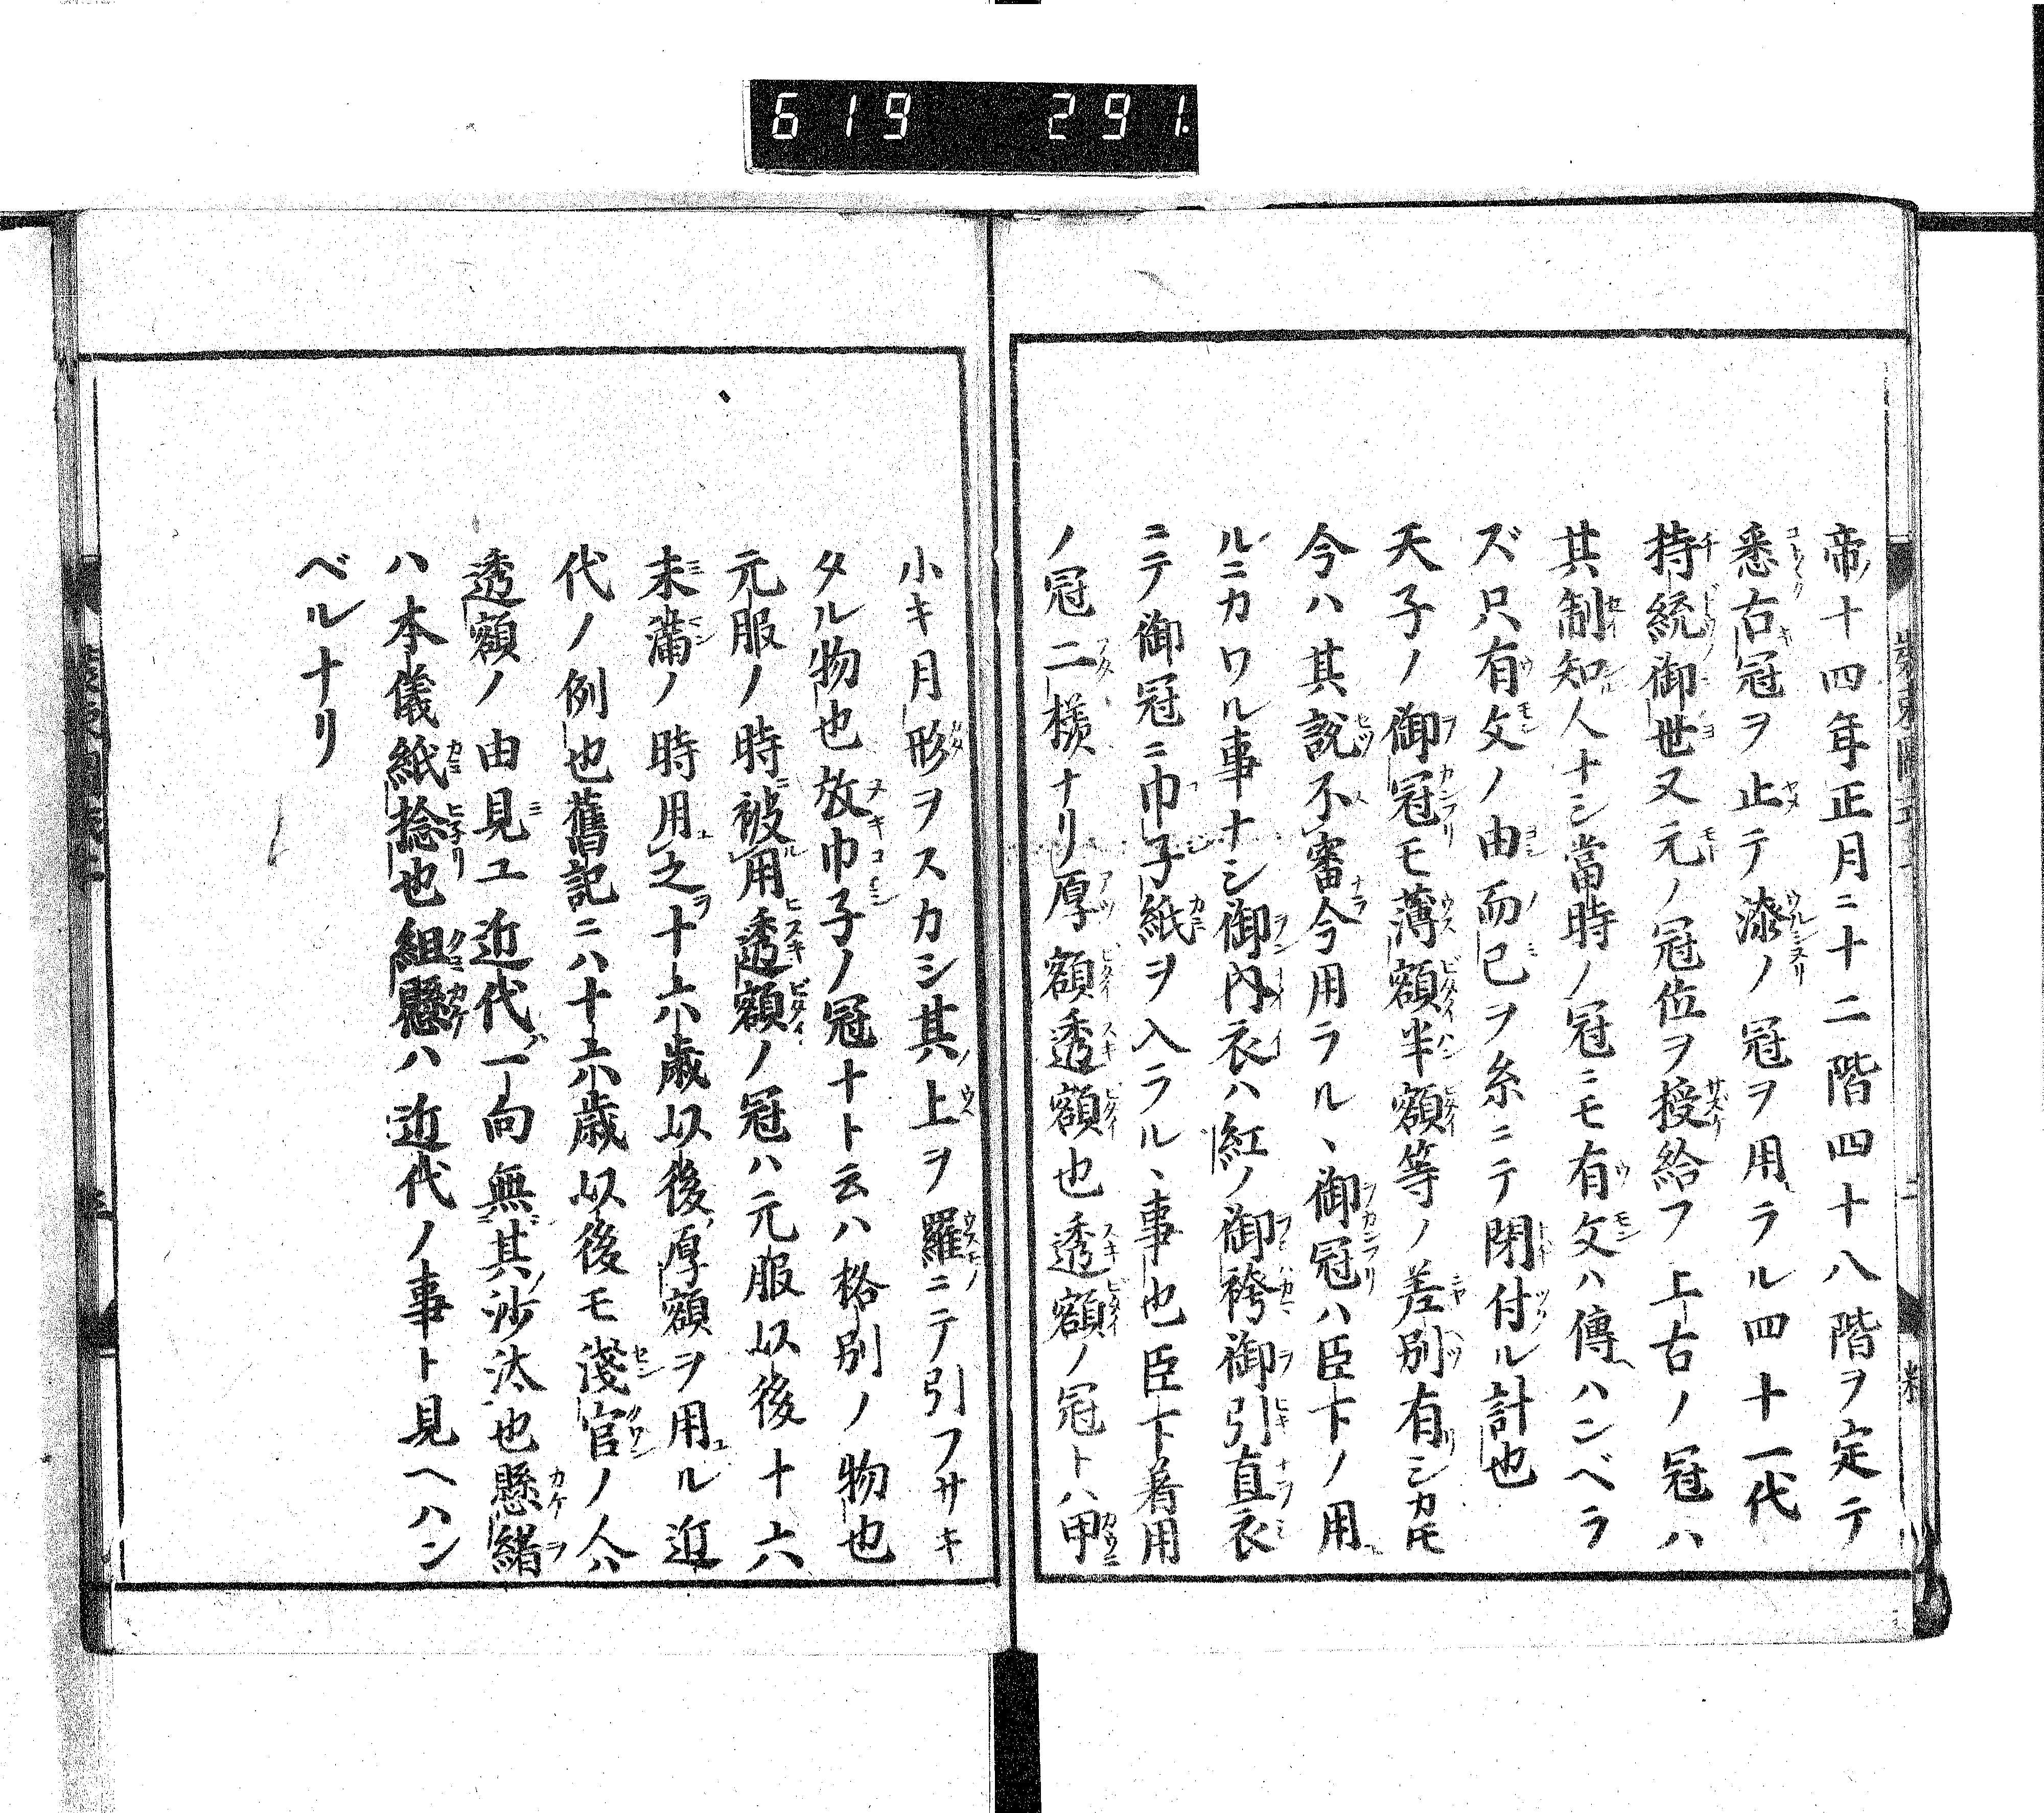 619 291
帝ノ十四年正月ニ十二階四十八階ヲ定テ
悉右冠ヲ止テ漆ノ冠ヲ用ラル四十一代
持統御世又元ノ冠位ヲ授給フ上古ノ冠ハ
其制知人ナシ當時ノ冠ニモ有文ハ傳ハンベラ
ズ只有文ノ由而已ヲ糸ニテ閉付ル計也
天子ノ御冠モ薄額半額等ノ差別有シカモ
今ハ其說不審今用ラルヽ御冠ハ臣下ノ用
ルニカワル事ナシ御內衣ハ紅ノ御袴御引直衣
ニテ御冠ニ巾子紙ヲ入ラルヽ事也臣下着用
ノ冠二樣ナリ厚額透額也透額ノ冠トハ甲
小キ月形ヲスカシ其上ヲ羅ニテ引フサキ
タル物也放巾子ノ冠ナト云ハ格別ノ物也
元服ノ時被用透額ノ冠ハ元服以後十六
未滿ノ時用之十六歲以後厚額ヲ用ル近
代ノ例也舊記ニハ十六歲以後モ淺官ノ人ハ
透額ノ由見ユ近代一向無其沙汰也懸緖
ハ本儀紙捻也組懸ハ近代ノ事ト見ヘハン
ベルナリ